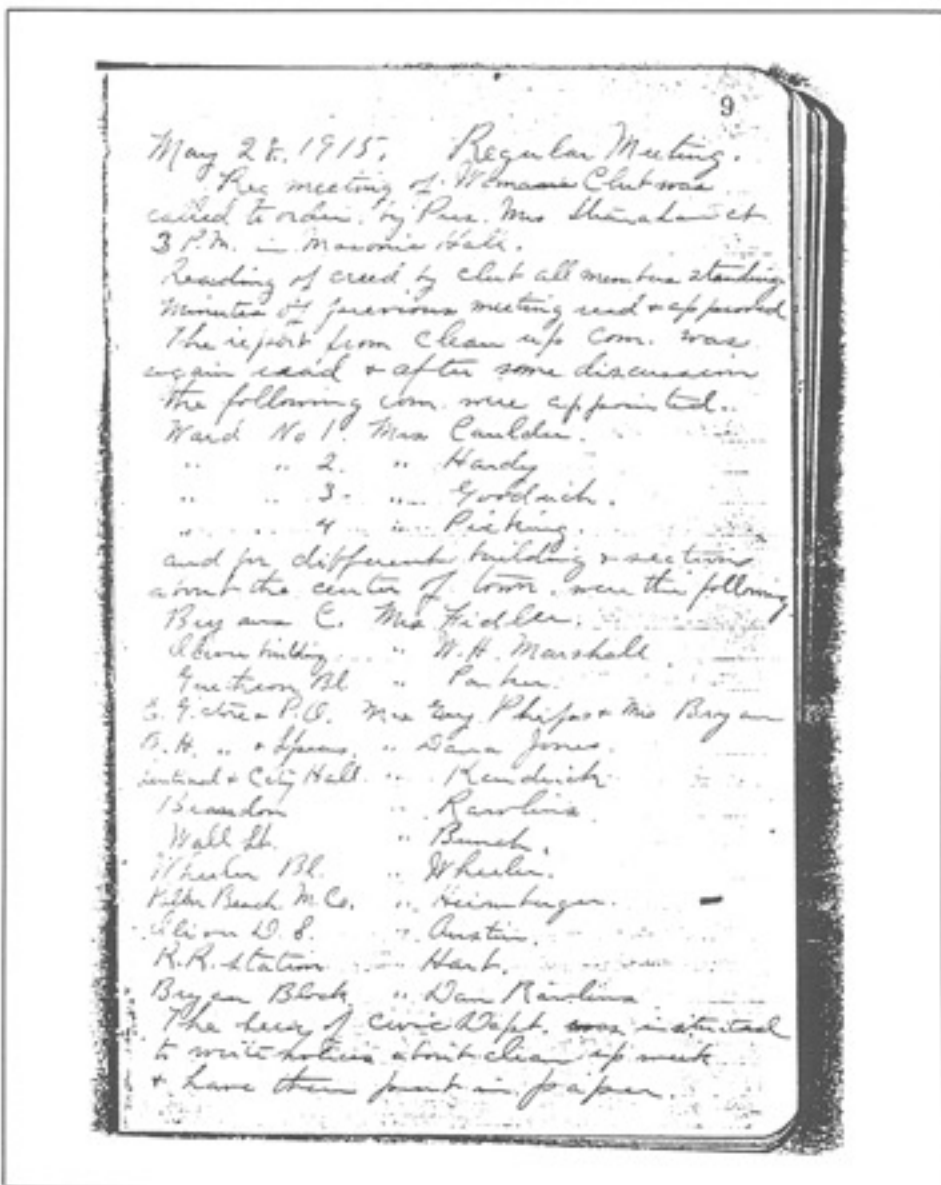 9
May 28, 1915. Regular Meeting.
Reg meeting of Womans Club was
called to order by Pres. Mrs at
3 P.M. in Masonic Hall.
Reading of creed by club all members standing
Minutes of previous meeting read & approved
The report from clean up com. was
again read & after some discussion
the following com. were appointed.
Ward No 1. Mrs Caulder.
" " 2. " Hardy
" " 3. " Goodrich.
" " 4 " Picking.
and for different building & sections
about the center of town were the following
Bryans C. Mrs Fidler.
building " W. H. Marshall
Bl " Parker.
store & P.O. Mrs Guy Phifps & Mrs Bryan
B. H. " & " Dana Jones.
Sentinel & City Hall " Kendrick
Brandon " Rawlins
Wall St. " Bunch.
Wheeler Bl. " Wheeler.
Beach M. Co. " Heimburger.
D. S. " Austin.
R.R. Station Hart.
Bryan Block " Dan Rawlins
The of Civic Dept. was instructed
to write notices about clean up week
& have them put in paper